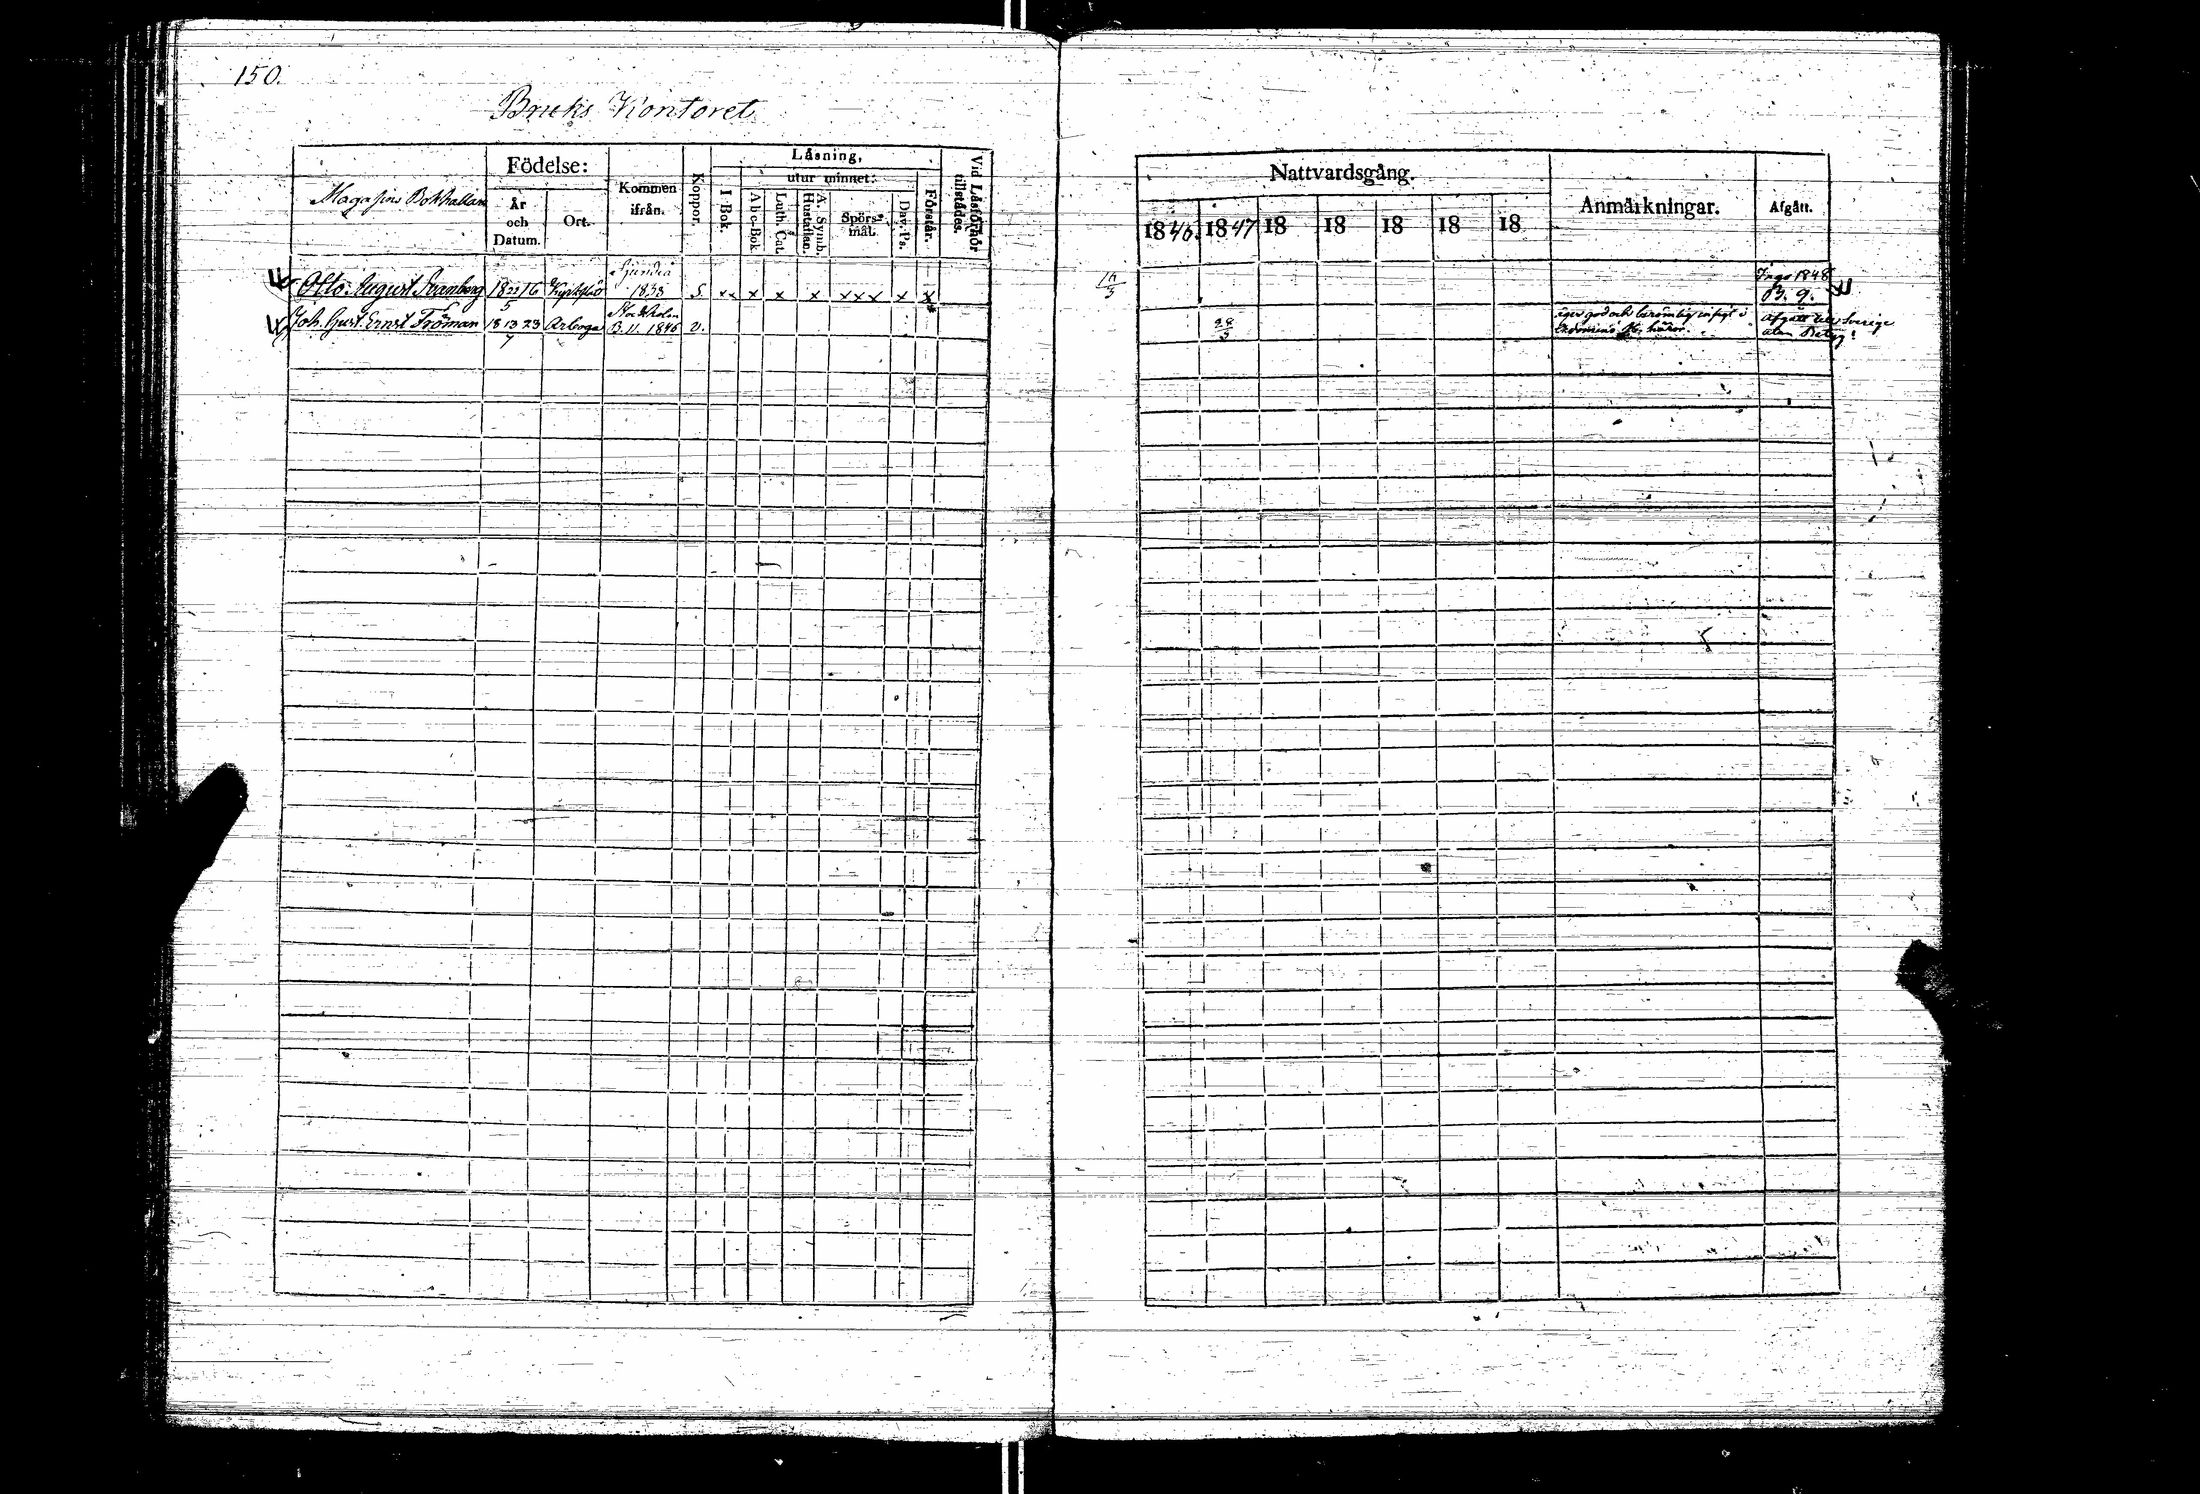 150.
Bruks Kontoret
Magasins Bokhållare
Födelse:
År och Datum.
Ort.
Kommen ifrån.
Koppor.
Läsning,
utur minnet:
I Bok.
Abc-Bok
Luth. Cat.
A. Symb. Hustaflan.
Spörs-mål.
Dav. Ps.
Förstår.
Vid Läsförhör tillstädes.
Nattvardsgång.
1846. 1847 18 18 18 18 18
Anmärkningar.
Afgått.
Otto August Stramberg 1822 16/5 Kyrkslätt Sjundeå 1838 S. x x x x x x x x x x
Ingå 1848 B. 9.
Joh. Gust. Ernst Fröman 1813 23/7 Arboga Stockholm B. 11. 1846 v.
28/3
äger god och berömlig insigt i
Afgått till Sverige
utan Betyg!